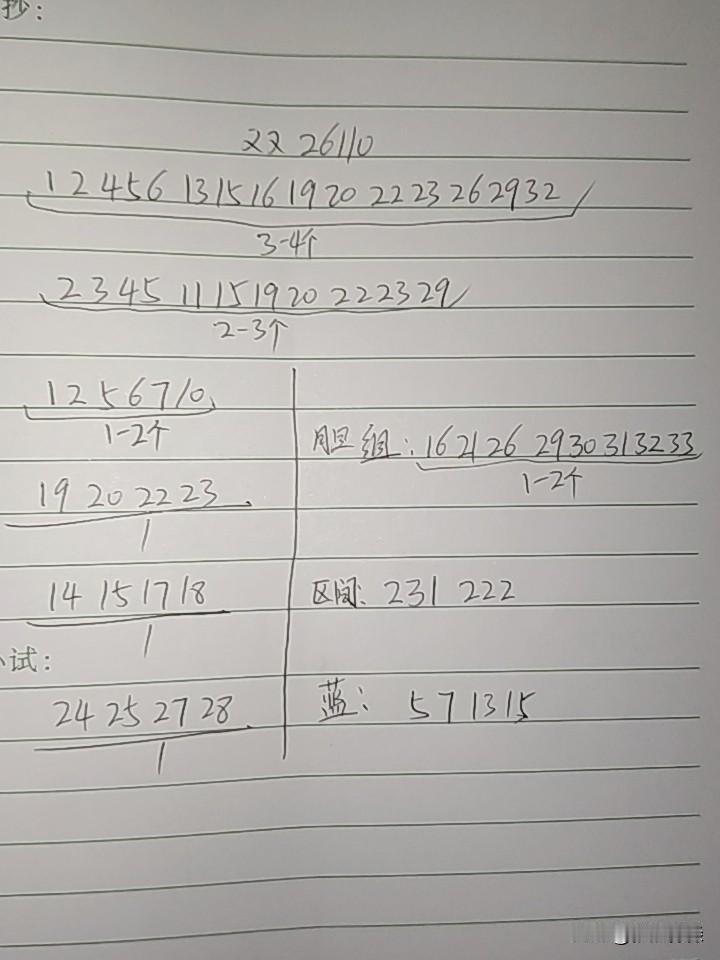 抄:
双 26110
1 2 4 5 6 13 15 16 19 20 22 23 26 29 32
3-4个
2 3 4 5 11 15 19 20 22 23 29
2-3个
1 2 5 6 7 10
1-2个
胆组: 16 21 26 29 30 31 32 33
1-2个
19 20 22 23
1
14 15 17 18
1
区间: 231 222
试:
24 25 27 28
1
蓝: 5 7 13 15